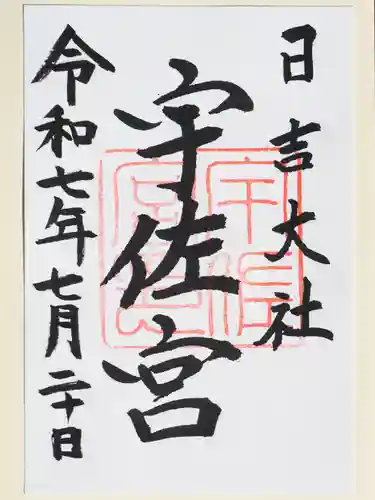 日吉大社
宇佐宮
令和七年七月二十日